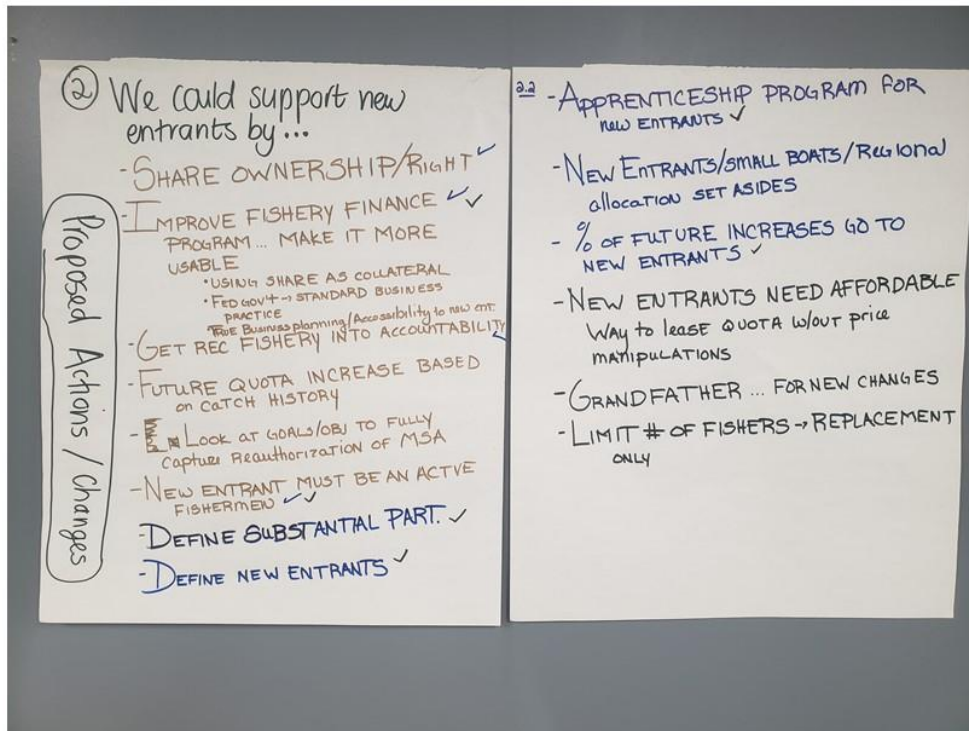 ② We could support new
entrants by...
- SHARE OWNERSHIP/RIGHT ✓
- IMPROVE FISHERY FINANCE ✓✓
PROGRAM... MAKE IT MORE
USABLE
• USING SHARE AS COLLATERAL
• FED GOV'T → STANDARD BUSINESS
PRACTICE
TRUE Business planning/Accessibility to new ent.
- GET REC FISHERY INTO ACCOUNTABILITY ✓
- FUTURE QUOTA INCREASE BASED
on CATCH HISTORY
- Look at GOALS/OBJ TO FULLY
Capture Reauthorization of MSA
- NEW ENTRANT MUST BE AN ACTVE
FISHERMEN ✓✓
- DEFINE SUBSTANTIAL PART. ✓
- DEFINE NEW ENTRANTS ✓
Proposed Actions / Changes
2.2 - APPRENTICESHIP PROGRAM FOR
new ENTRANTS ✓
- NEW ENTRANTS/SMALL BOATS/REGIONAL
allocation SET ASIDES
- % OF FUTURE INCREASES GO TO
NEW ENTRANTS ✓
- NEW ENTRANTS NEED AFFORDABLE
Way to lease QUOTA w/out price
manipulations
- GRANDFATHER ... FOR NEW CHANGES
- LIMIT # OF FISHERS → REPLACEMENT
ONLY